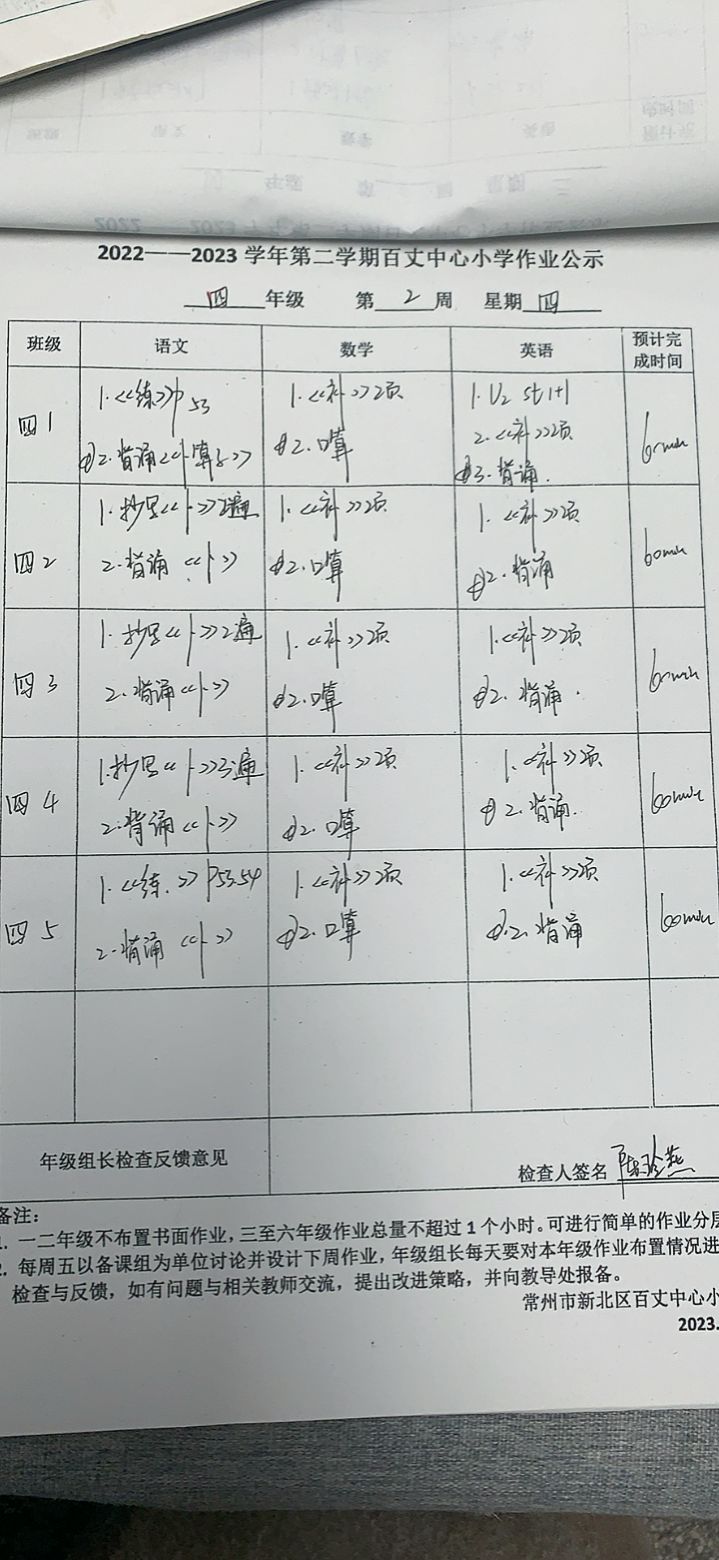 2022——2023 学年第二学期百丈中心小学作业公示
四 年级 第 2 周 星期 四
班级 语文 数学 英语 预计完成时间
四1
1.<<练>>P53
2.背诵<<卜算子>>
1.<<补>>2页
2.口算
1. U2 st 1+1
2.<<补>>2页
3.背诵.
60min
四2
1.抄写<<卜>>2遍
2.背诵<<卜>>
1.<<补>>2页
2.口算
1.<<补>>2页
2.背诵
60min
四3
1.抄写<<卜>>2遍
2.背诵<<卜>>
1.<<补>>2页
2.口算
1.<<补>>2页
2.背诵.
60min
四4
1.抄写<<卜>>3遍
2.背诵<<卜>>
1.<<补>>2页
2.口算
1.<<补>>2页
2.背诵.
60min
四5
1.<<练.>>P53.54
2.背诵<<卜>>
1.<<补>>2页
2.口算
1.<<补>>2页
2.背诵
60min
年级组长检查反馈意见
检查人签名
备注:
1. 一二年级不布置书面作业,三至六年级作业总量不超过 1 个小时。可进行简单的作业分层
2. 每周五以备课组为单位讨论并设计下周作业,年级组长每天要对本年级作业布置情况进
检查与反馈,如有问题与相关教师交流,提出改进策略,并向教导处报备。
常州市新北区百丈中心小
2023.